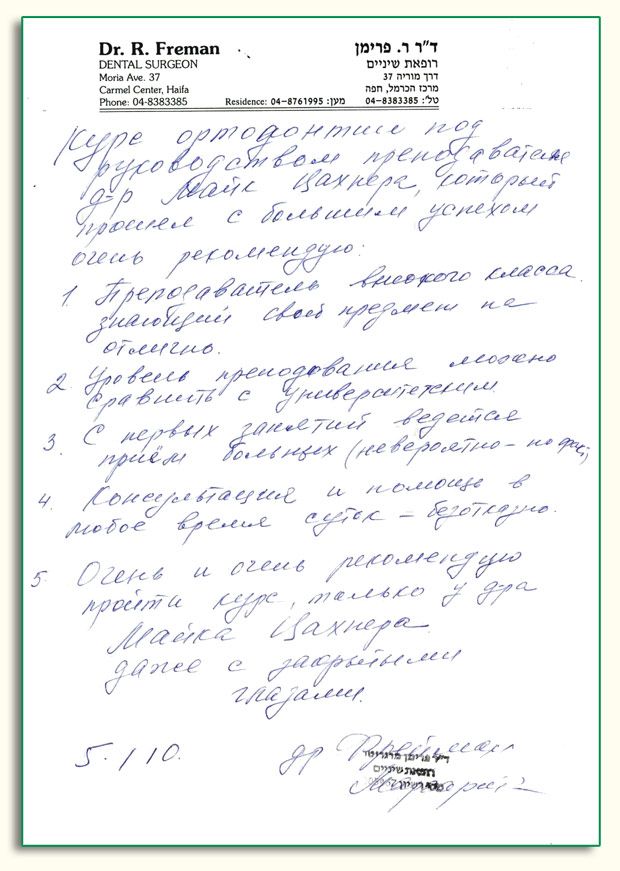 Dr. R. Freman
DENTAL SURGEON
Moria Ave. 37
Carmel Center, Haifa
Phone: 04-8383385
Residence: 04-8761995 :מען
ד"ר ר. פרימן
רופאת שיניים
דרך מוריה 37
מרכז הכרמל, חפה
טל': 04-8383385
Курс ортодонтии под
руководством преподавателя
д-р Майк Цахнера, который
прошел с большим успехом
очень рекомендую:
1. Преподаватель высокого класса
знающий свой предмет на
отлично.
2. Уровень преподования можно
сравнить с университетским.
3. С первых занятий ведется
приём больных (невероятно - но факт)
4. Консультация и помощь в
любое время суток - безотказно.
5. Очень и очень рекомендую
пройти курс, только у д-ра
Майка Цахнера
даже с закрытыми
глазами.
5. / 10.
др Фрейман
ד"ר פרימן מרגריטה
רופאת שיניים